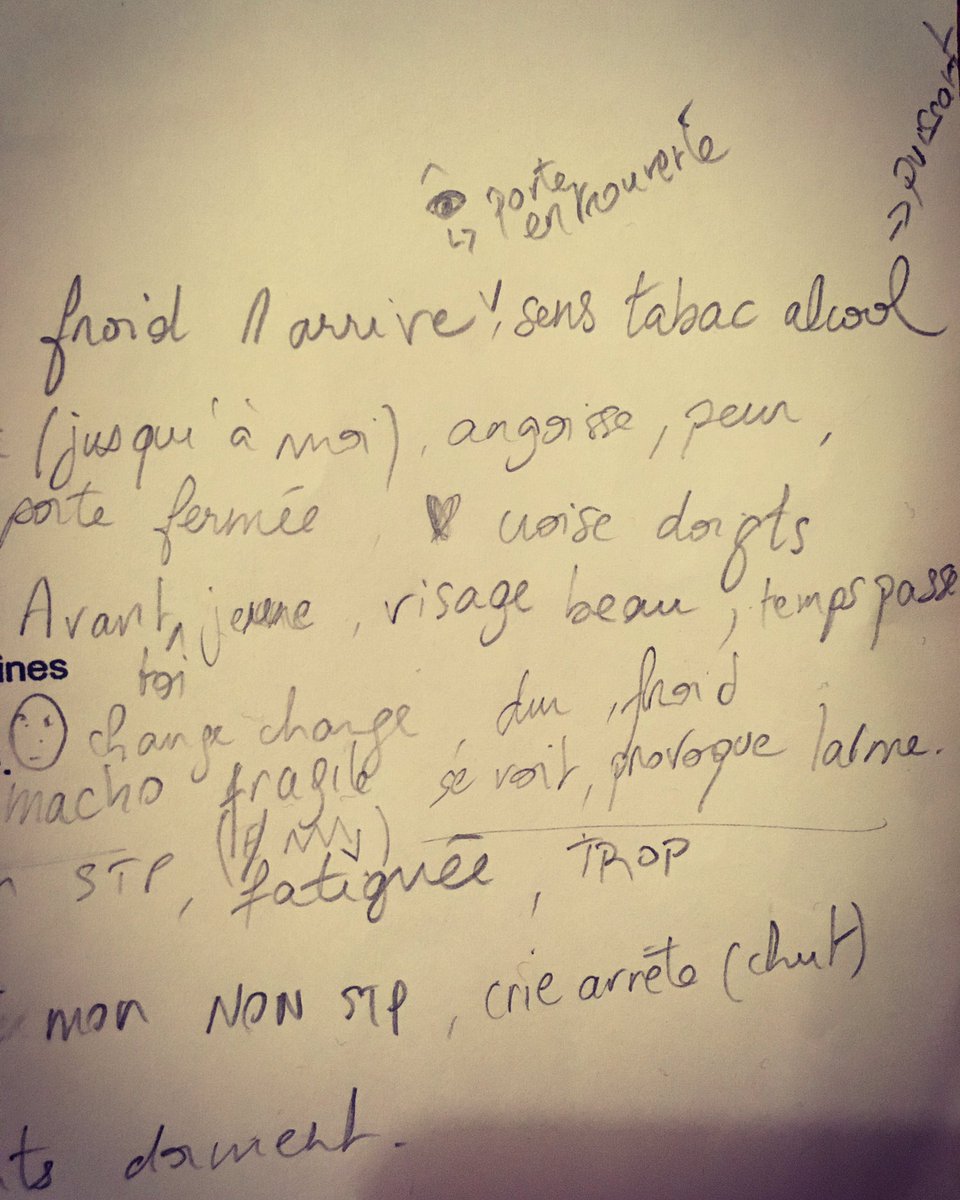 porte
entrouverte
=> puissant
froid il arrive, sens tabac alcool
(jusqu'à moi), angoisse, peur,
porte fermée, croise doigts
Avant, jeune, visage beau, temps passe
toi
ines
change change, dur, froid,
macho fragile se voit, provoque larme.
STP, fatiguée, TROP
mon NON STP, crie arrête (chut)
ts dorment.